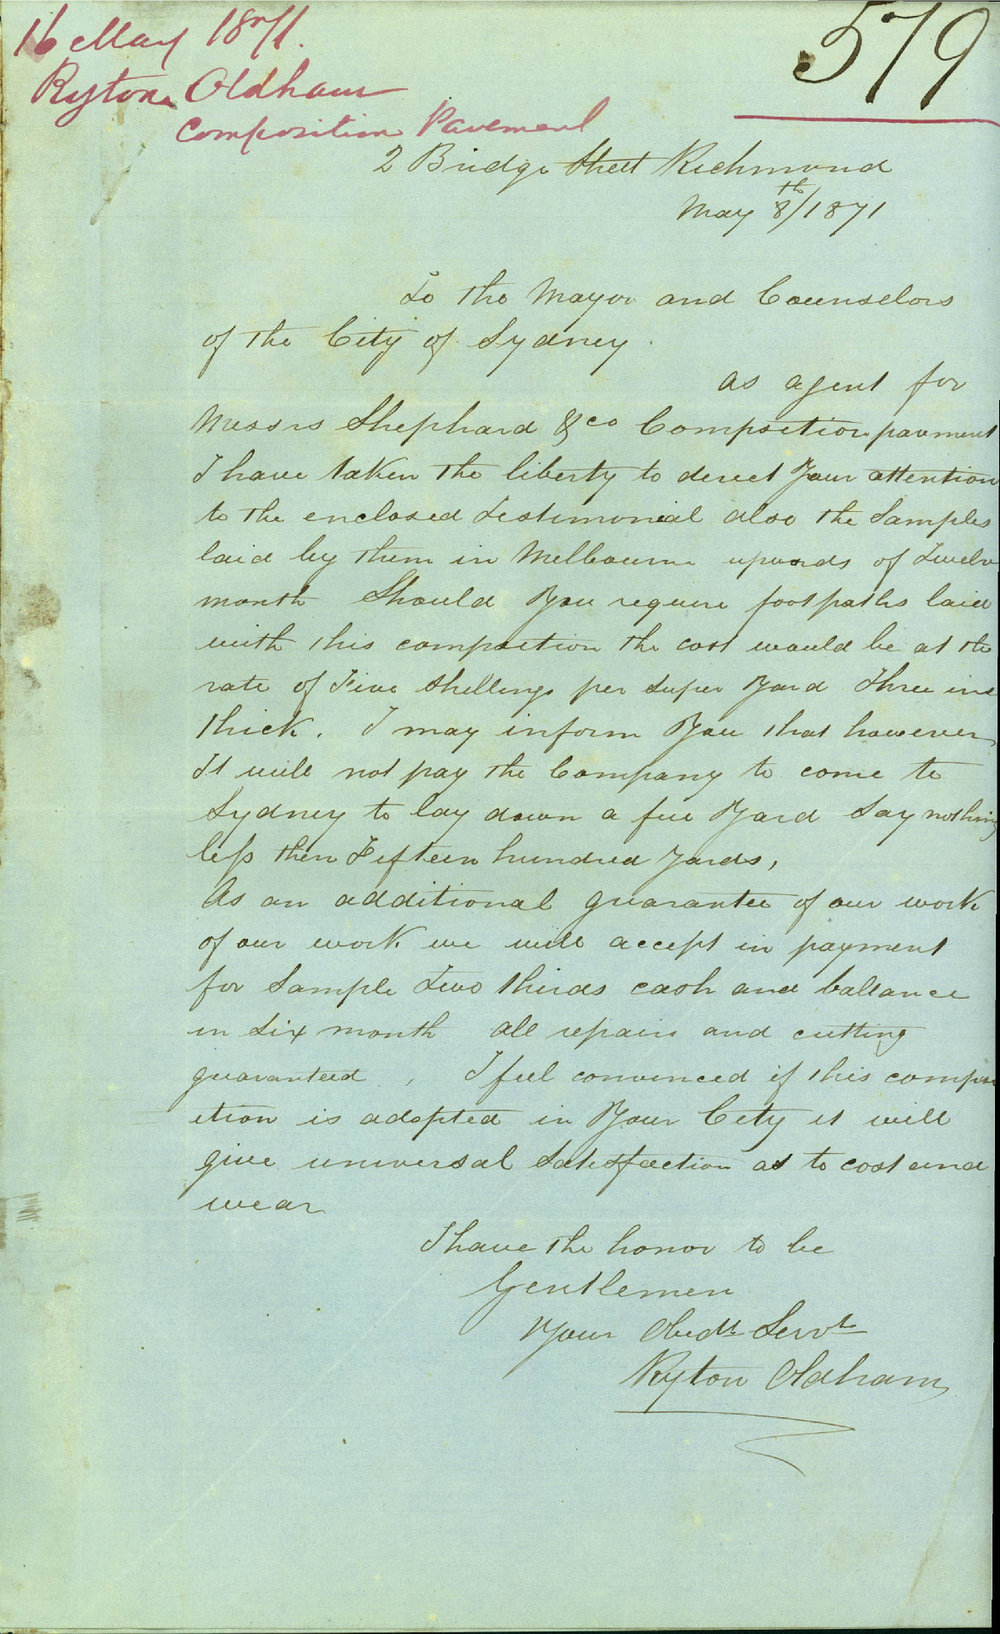 16 May 1871.
579
Ryton Oldham
Composition Pavement
2 Bridge Street Richmond
May 8th/1871
To the Mayor and Counselors
of the City of Sydney.
as agent for
Messrs Shephard & Co Compsetion pavment
I have taken the liberty to derect Your attention
to the enclosed Testimonial also the Samples
laid by them in Melbourne upwards of Twelve
month Should You require footpaths laid
with this compsetion the cost would be at the
rate of Five Shellings per super Yard Three inc
thick. I may inform You that however
It will not pay the Company to come to
Sydney to lay down a few Yard Say nothing
less then Fifteen hundred Yards,
As an additional guarantee of our work
of our work we will accept in payment
for Sample Two thirds cash and ballance
in Six month all repairs and cutting
guaranteed, I feel convenced if this compos
ition is adopted in Your City it will
give universal Satesfaction as to cost and
wear
I have the honor to be
Gentlemen
Your Obedt Servt
Ryton Oldham